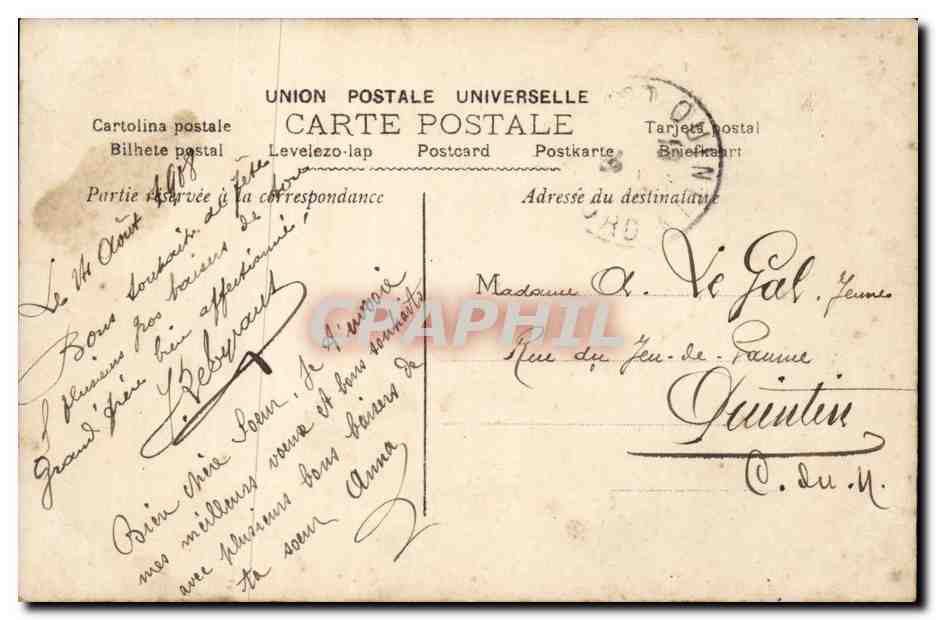 UNION POSTALE UNIVERSELLE
CARTE POSTALE
Cartolina postale
Tarjeta postal
Bilhete postal Levelezo-lap Postcard Postkarte Briefkaart
Partie réservée à la correspondance
Adresse du destinataire
Le 14 Août 1908
Bons souhaits de fête
& plusieurs gros baisers de ton
Grand frère bien affectionné!
Bien chère Soeur, Je t'envoie
mes meilleurs voeux et bons souhaits
avec plusieurs bons baisers de
ta soeur Anna
Madame A. Le Gal, Jeune
Rue du Jeu-de-Paume
Quintin
C.-du-N.
CPAPHIL